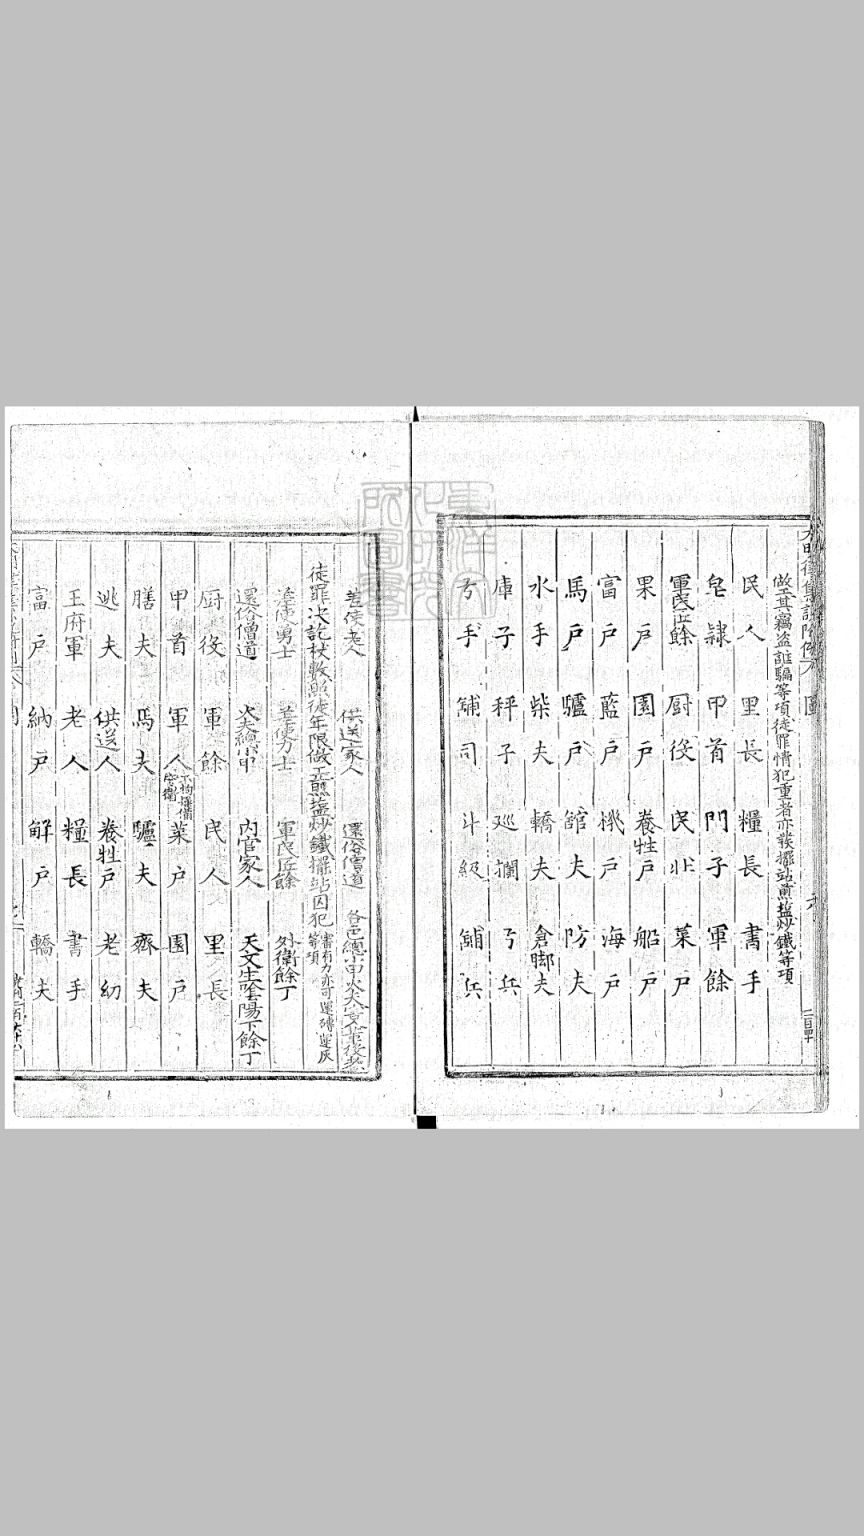 做工其竊盜誆騙等項徒罪情犯重者亦發擺站煎塩炒鐵等項
民人 里長 糧長 書手
皂隷 甲首 門子 軍餘
軍民匠餘 厨役 民壯 菜戶
果戶 園戶 養牲戶 船戶
富戶 藍戶 機戶 海戶
馬戶 驢戶 舘夫 防夫
水手 柴夫 轎夫 倉脚夫
庫子 秤子 廵攔 弓兵
弓手 舖司 斗級 舖兵
二百四十
差使老人 供送家人 還俗僧道
徒罪决訖杖數照徒年限做工煎塩炒鐵擺站囚犯 審有力亦可運磚運灰等項
差使勇士 差使力士 軍民匠餘 外衛餘丁
還俗僧道 火夫總小甲 内官家人 天文生陰陽下餘丁
厨役 軍餘 民人 里長
甲首 軍人 菜戶 園戶
膳夫 馬夫 驢夫 齋夫
逃夫 供送人 養牲戶 老幼
王府軍 老人 糧長 書手
富戶 納戶 解戶 轎夫